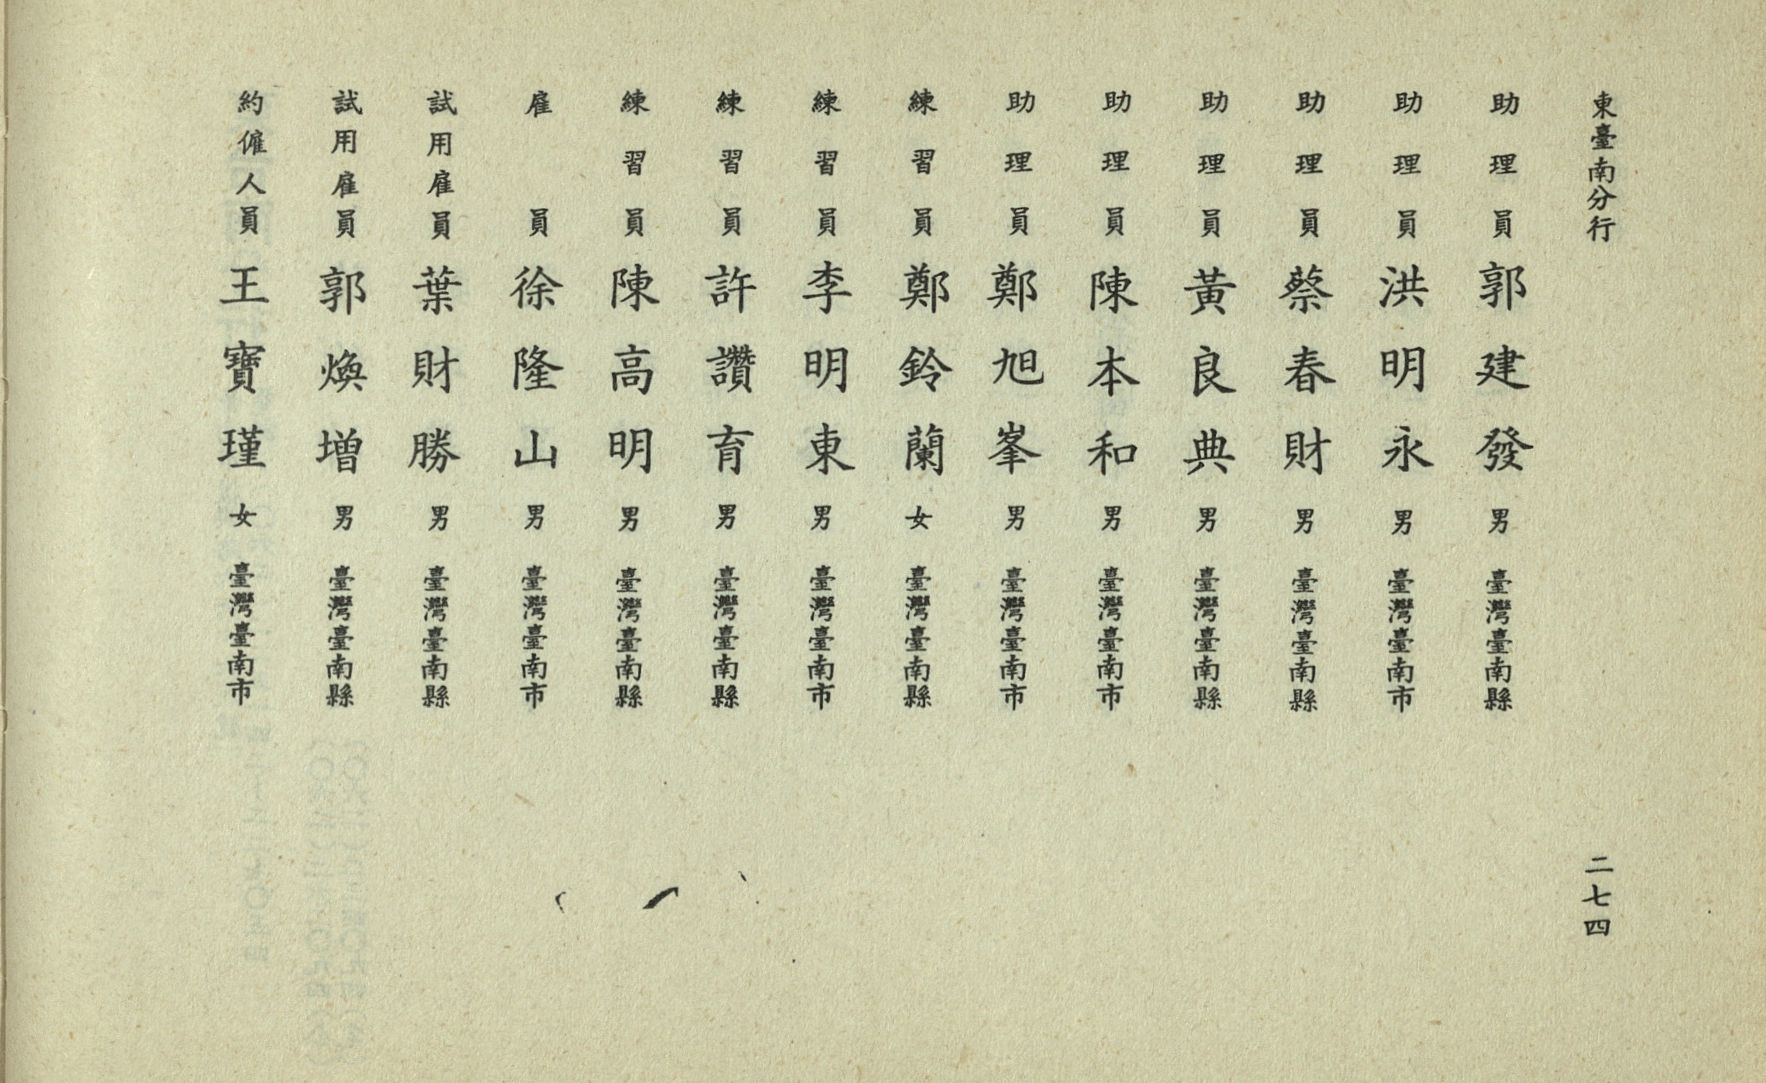 東臺南分行
二七四
助理員 郭建發 男 臺灣臺南縣
助理員 洪明永 男 臺灣臺南市
助理員 蔡春財 男 臺灣臺南縣
助理員 黃良典 男 臺灣臺南縣
助理員 陳本和 男 臺灣臺南市
助理員 鄭旭峯 男 臺灣臺南市
練習員 鄭鈴蘭 女 臺灣臺南縣
練習員 李明東 男 臺灣臺南市
練習員 許讚育 男 臺灣臺南縣
練習員 陳高明 男 臺灣臺南縣
雇員 徐隆山 男 臺灣臺南市
試用雇員 葉財勝 男 臺灣臺南縣
試用雇員 郭煥增 男 臺灣臺南縣
約僱人員 王寶瑾 女 臺灣臺南市